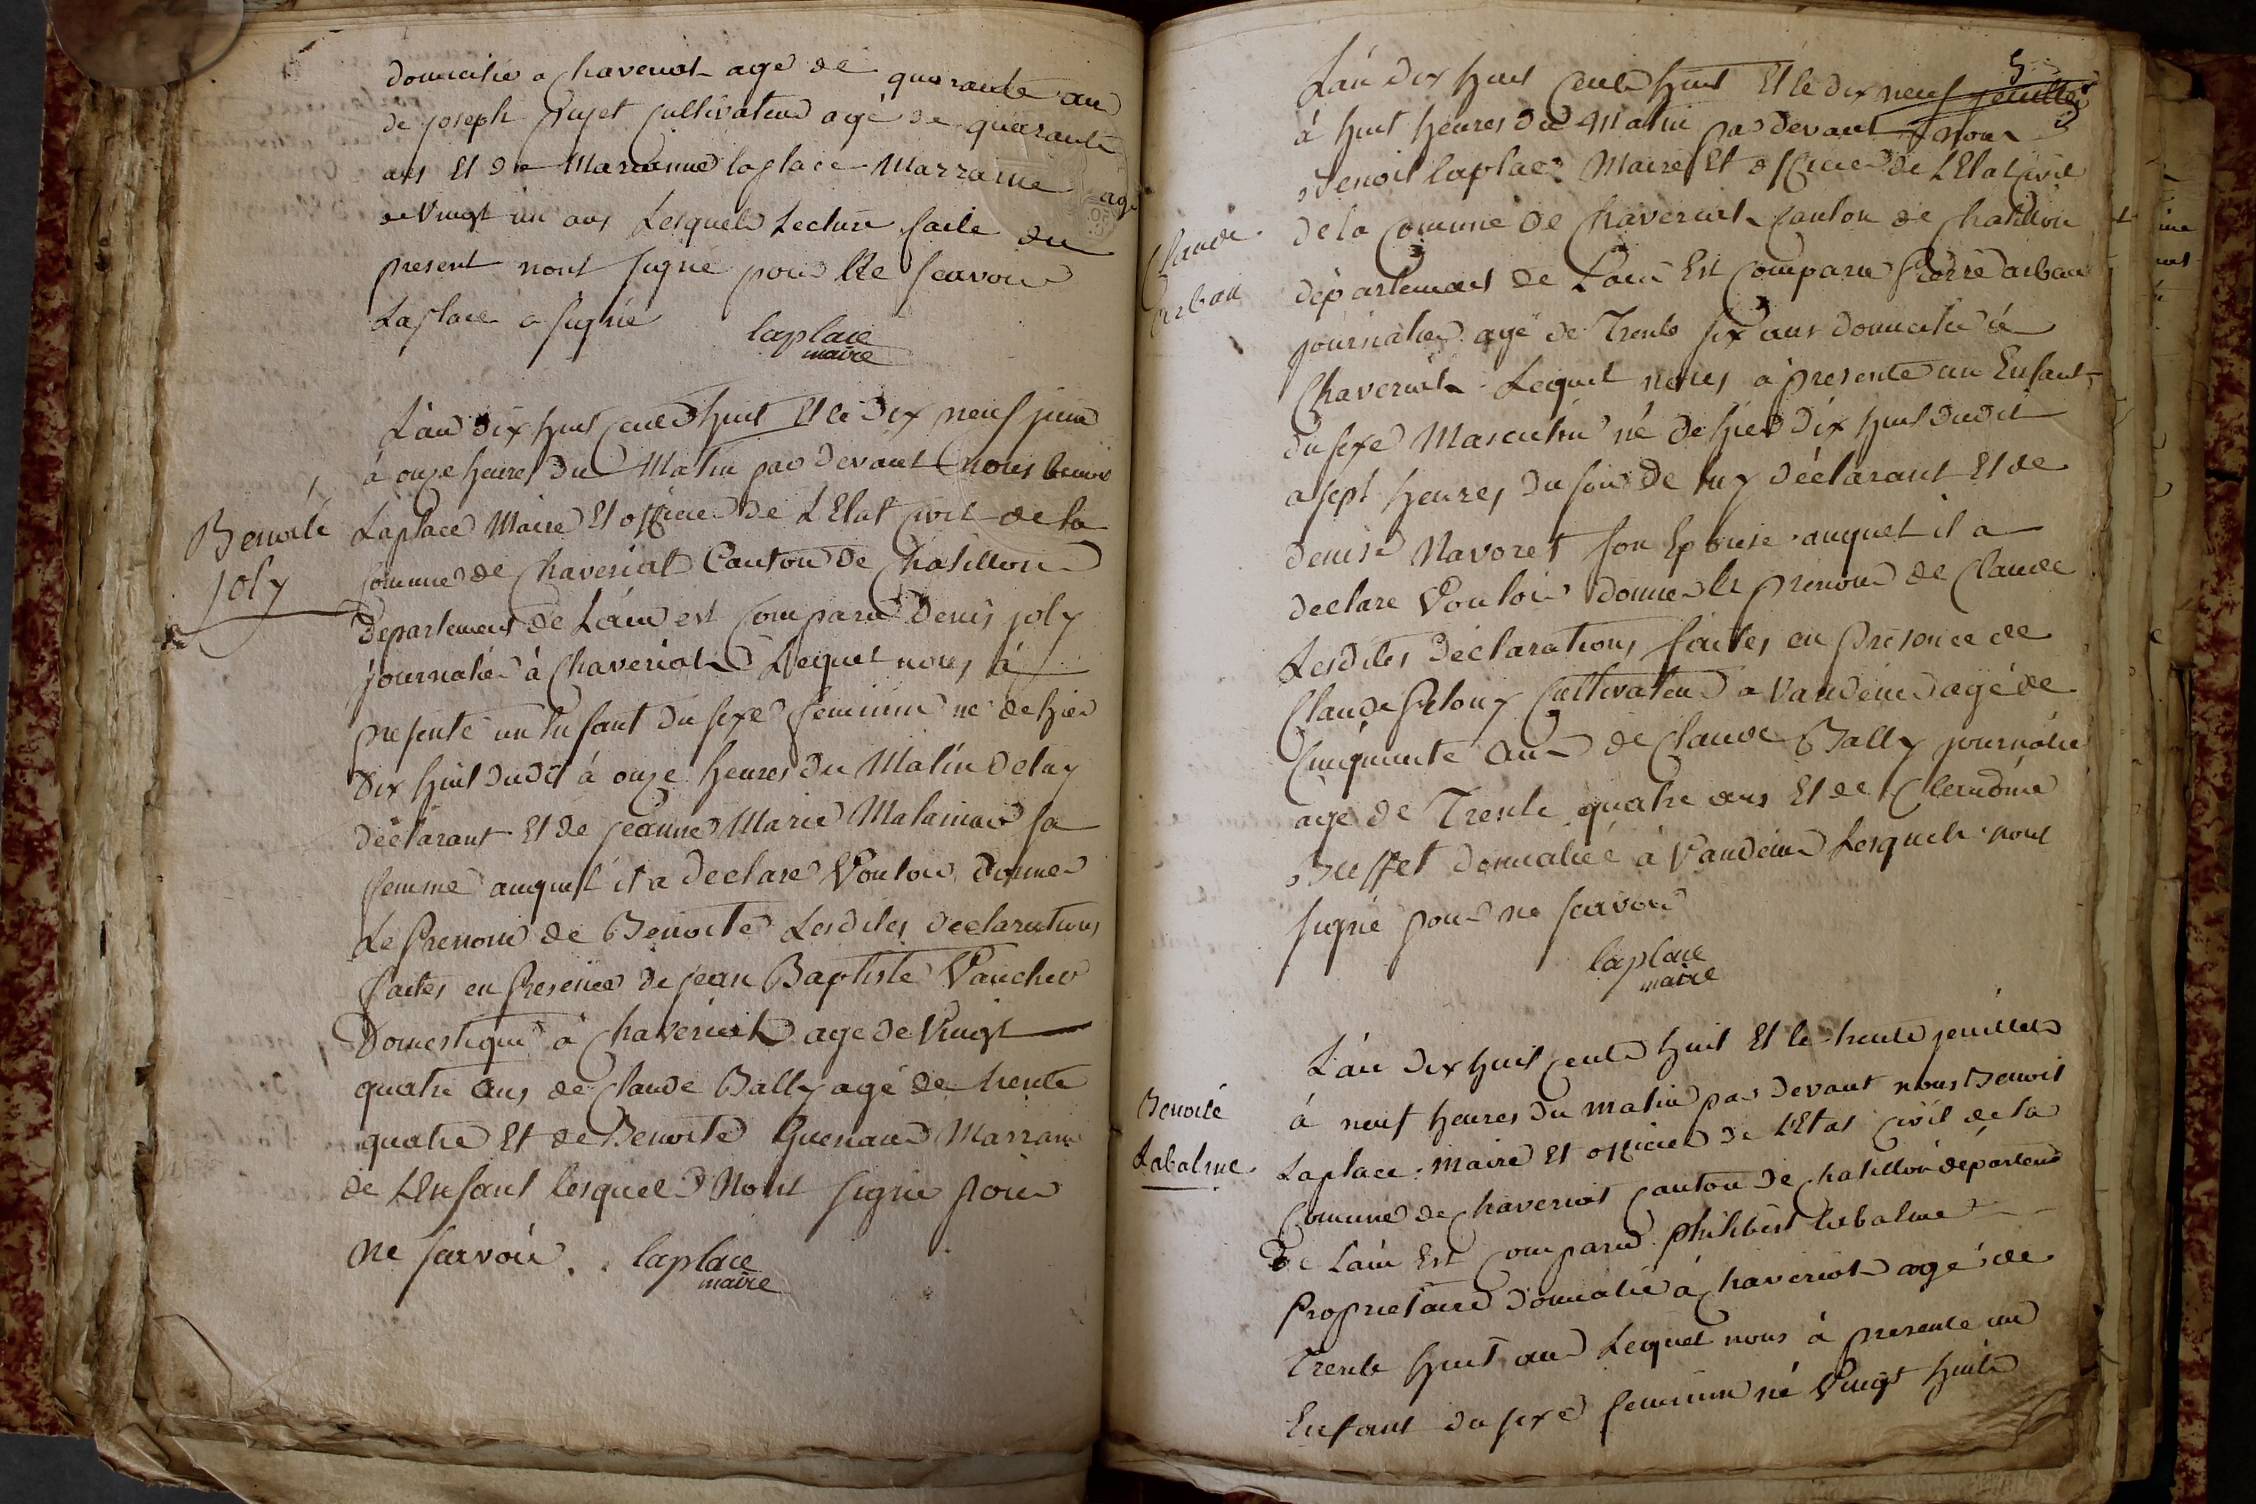 domicilié a Chaveriat agé de quarante an
de joseph Pujet Cultivateur agé de quarante
ans Et de Marianne laplace Marraine agé
de Vingt un ans Lesquels Lecture faite du
present nont signé pour Ne scavoir
Laplace a signé
laplace
maire
L'an dix huit cent huit Et le dix neuf juin
à onze heures du Matin par devant nous benoit
Laplace Maire Et officier de L'Etat Civil de la
Commune de Chaveriat Canton de Chatillon
Departement de L'ain est Comparu Denis joly
journalier à Chaveriat Lequel nous à
presenté un Enfant du sexe feminin né de hier
dix huit dudit à onze heures du Matin de luy
déclarant Et de jeanne Marie sa
femme auquel il a declaré Vouloir Donner
Le Prenom de Benoite Lesdites declarations
faites en Presence de jean Baptiste Vaucher
Domestique à Chaveriat age de Vingt
quatre ans de Claude Bally agé de trente
quatre Et de Benoite Guenau Marraine
de L'Enfant lesquels Nont signé pour
Ne scavoir
laplace
maire
Benoite
joly
5
L'an dix huit cent huit Et le dix neuf jeuillet
à huit heures du Matin par devant nous
Benoit laplace Maire Et officier de L'Etat Civil
de la Commune de Chaveriat Canton de Chatillon
departement de L'ain Est Comparu Pierre arban
journalier agé de Trente six ans domicilié à
Chaveriat Lequel nous à presenté un Enfant
du sexe Masculin né de hier dix huit dudit
a sept heures du soir de luy déclarant Et de
denise Navoret son Epouse auquel il a
declaré Vouloir donner le prenom de Claude
Lesdites declarations faites en presence de
Claude Cultivateur a Vandeins agé de
Cinquante ans de Claude Bally journalier
agé de Trente quatre ans Et de Claudine
Buffet domiciliée à Vandeins Lesquels nont
signé pour ne scavoir
laplace
maire
Claude
arban
L'an dix huit cent huit Et le trente jeuillet
à neuf heures du matin par devant nous Benoit
Laplace Maire Et officier de L'Etat Civil de la
Commune de Chaveriat Canton de Chatillon département
de L'ain Est Comparu philibert labalme
Proprietaire domicilié à Chaveriat agé de
Trente huit ans Lequel nous à presenté un
Enfant du sexe feminin né Vingt huit
Benoite
Labalme